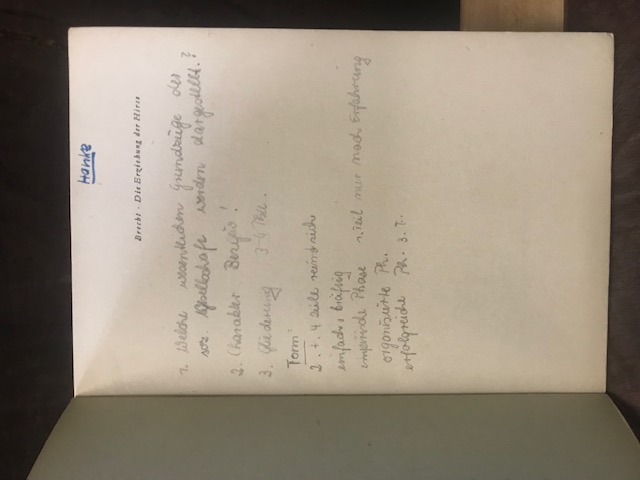 Hanke
Brecht - Die Erziehung der Hirse
1. Welche wesentlichen Grundzüge der
soz. Gesellschaft werden dargestellt.?
2. Charakter Bersijew!
3. Gliederung 3-4 Teile.
Form:
2. + 4 Zeile reimt sich
einfach, kräftig
empirische Phase 1. Teil nur nach Erfahrung
organisierte Ph.
erfolgreiche Ph. 3. T.